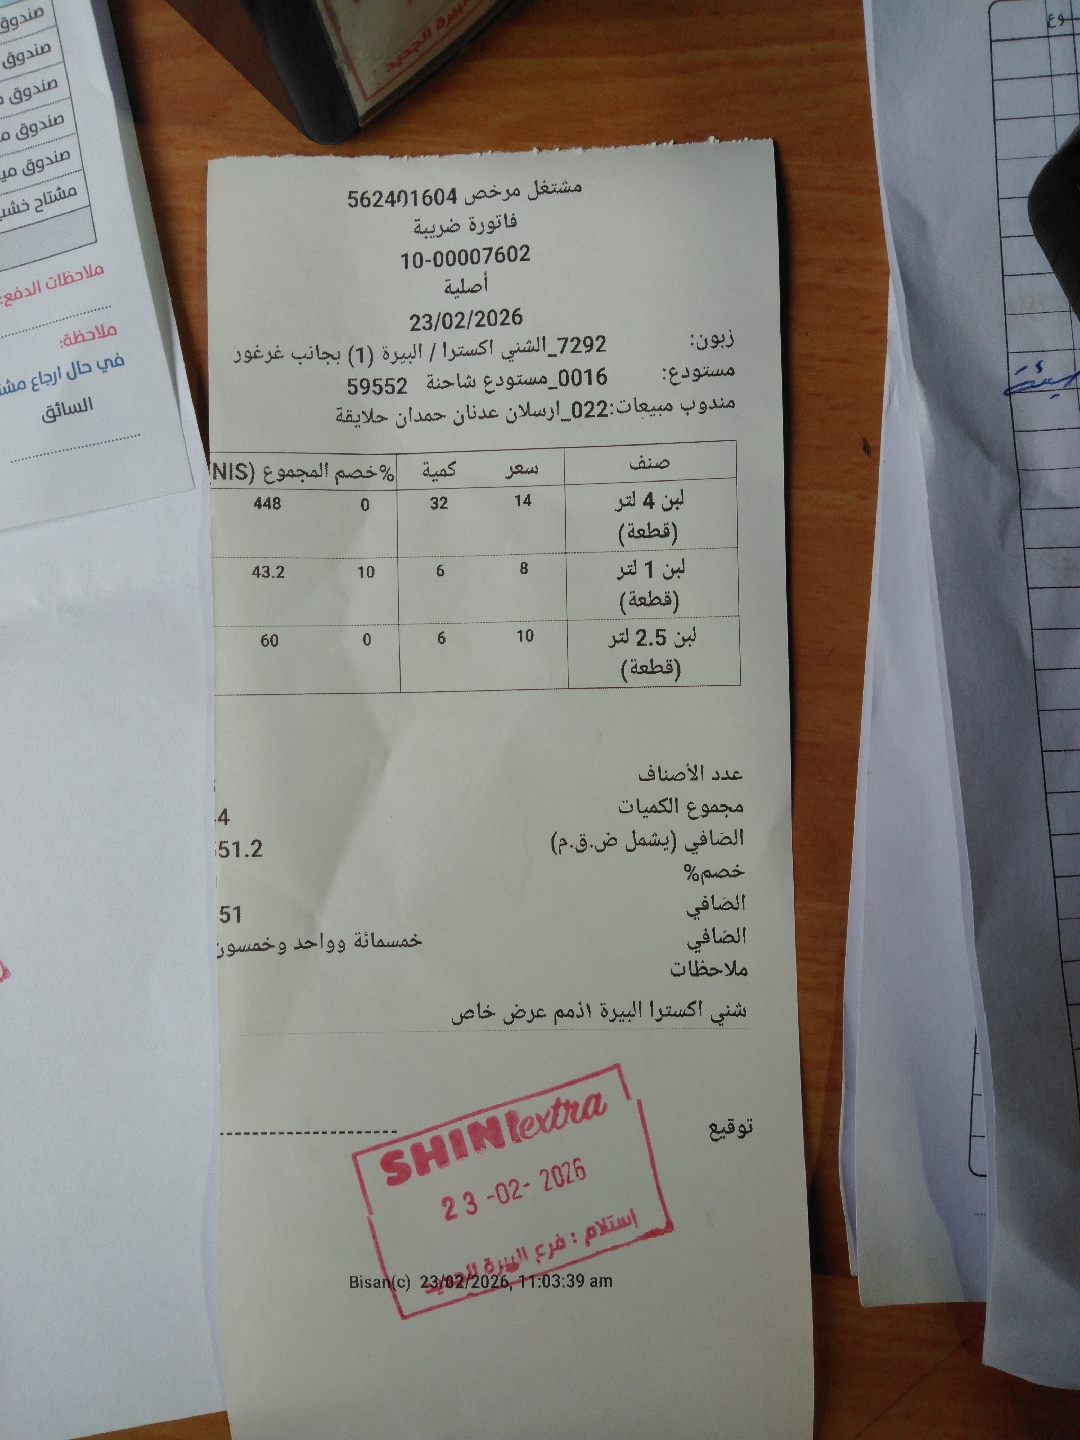 مشتغل مرخص 562401604
فاتورة ضريبة
10-00007602
أصلية
23/02/2026
زبون: 7292_الشني اكسترا / البيرة (1) بجانب غرغور
مستودع: 0016_مستودع شاحنة 59552
مندوب مبيعات:022_ارسلان عدنان حمدان حلايقة
صنف سعر كمية خصم% المجموع (NIS
لبن 4 لتر (قطعة) 14 32 0 448
لبن 1 لتر (قطعة) 8 6 10 43.2
لبن 2.5 لتر (قطعة) 10 6 0 60
عدد الأصناف
مجموع الكميات 4
الصافي (يشمل ض.ق.م) 51.2
خصم%
الصافي 51
الصافي خمسمائة وواحد وخمسون
ملاحظات
شني اكسترا البيرة اذمم عرض خاص
توقيع
SHINIextra
23-02-2026
إستلام : فرع البيرة الجديد
Bisan(c) 23/02/2026, 11:03:39 am
صندوق
صندوق
صندوق
صندوق
صندوق
مشتاح خشب
ملاحظات الدفع:
ملاحظة:
في حال ارجاع
السائق
البيرة الجديد